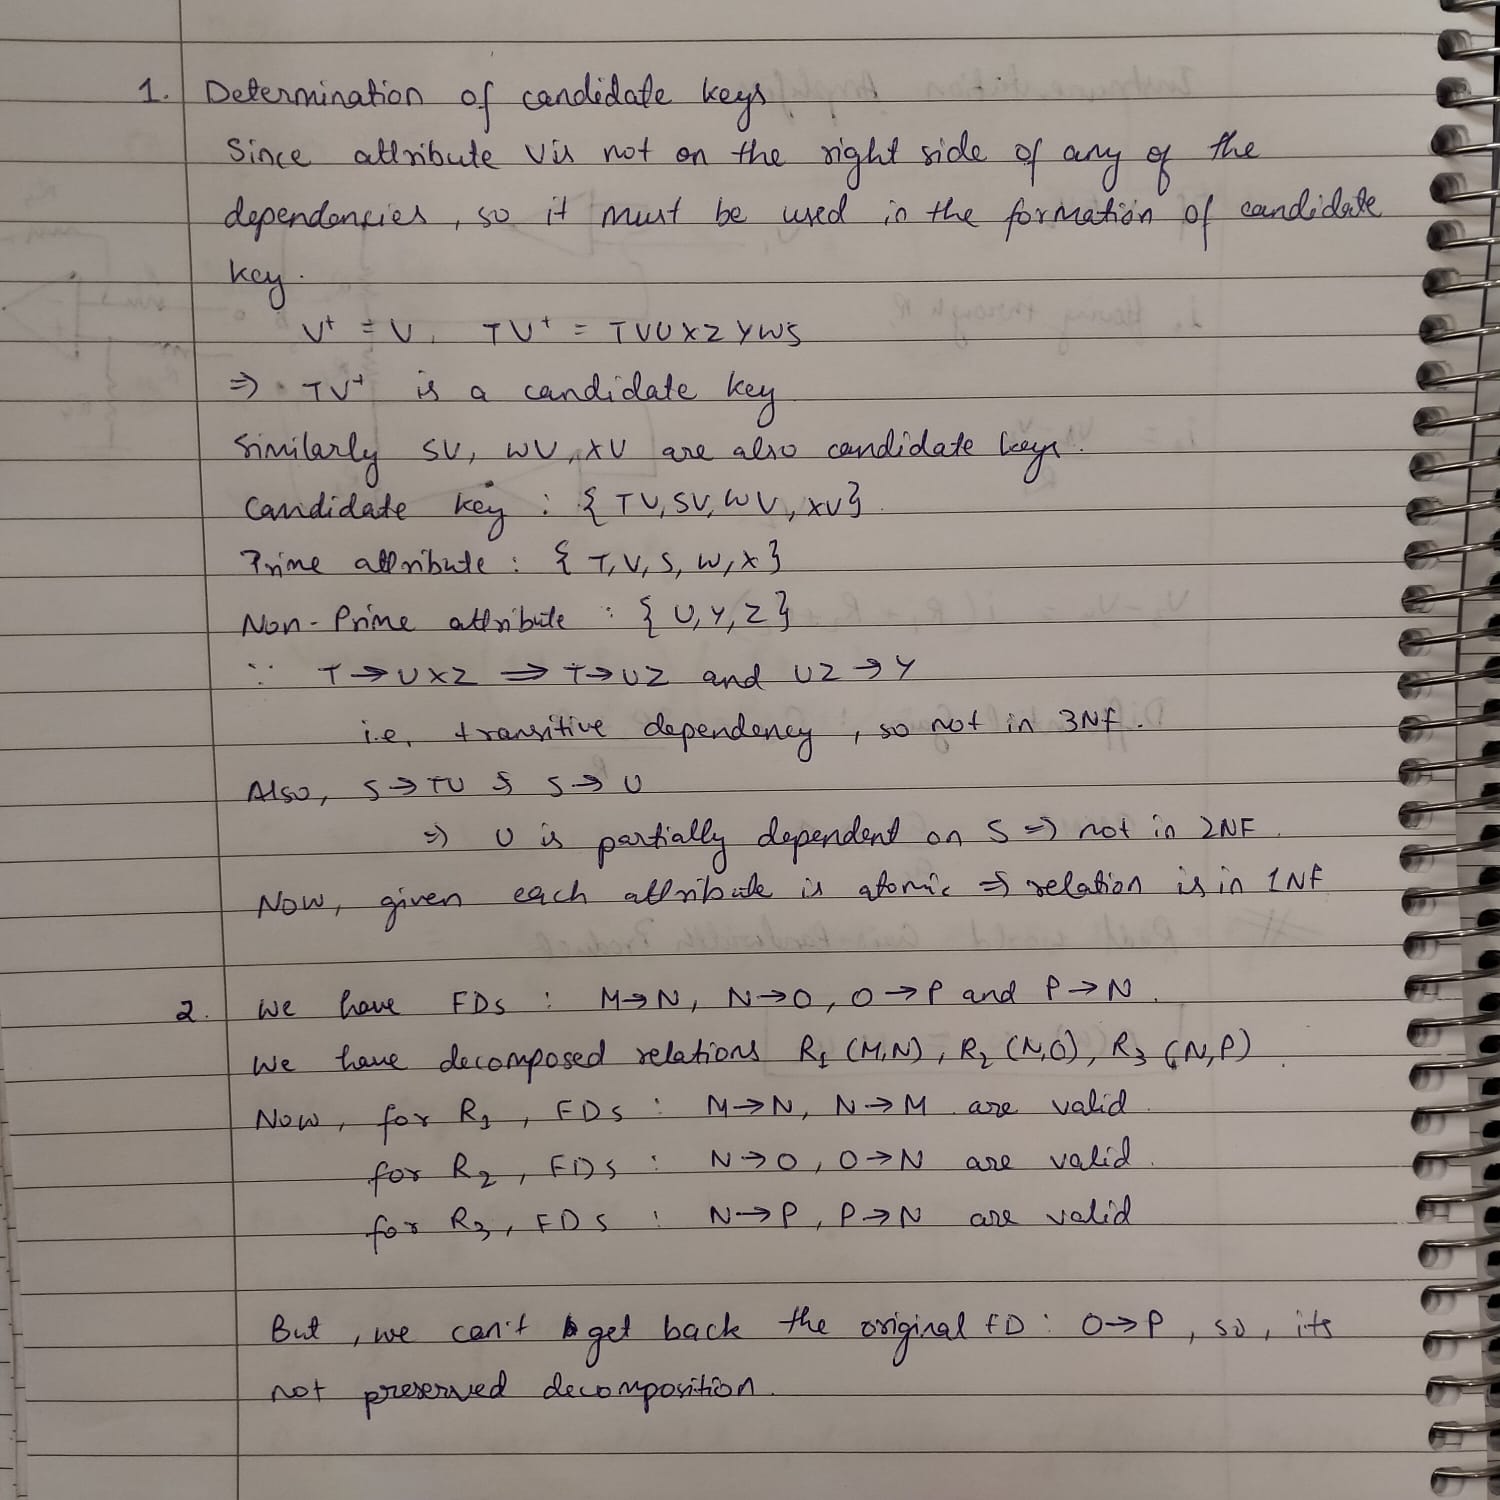 1. Determination of candidate keys
Since attribute V is not on the right side of any of the
dependencies, so it must be used in the formation of candidate
key.
V⁺ = V, TV⁺ = TVUXZYWS
⇒ TV⁺ is a candidate key
Similarly SV, WV, XV are also candidate keys.
Candidate key : { TV, SV, WV, XV}
Prime attribute : { T, V, S, W, X }
Non-Prime attribute : { U, Y, Z }
∵ T→UXZ ⇒ T→UZ and UZ→Y
i.e, transitive dependency, so not in 3NF.
Also, S→TU & S→U
⇒ U is partially dependent on S ⇒ not in 2NF.
Now, given each attribute is atomic ⇒ relation is in 1NF
2. We have FDs : M→N, N→O, O→P and P→N.
We have decomposed relations R₁ (M,N), R₂ (N,O), R₃ (N,P).
Now, for R₁, FDs : M→N, N→M are valid.
for R₂, FDs : N→O, O→N are valid.
for R₃, FDs : N→P, P→N are valid
But, we can't get back the original FD : O→P, so, its
not preserved decomposition.